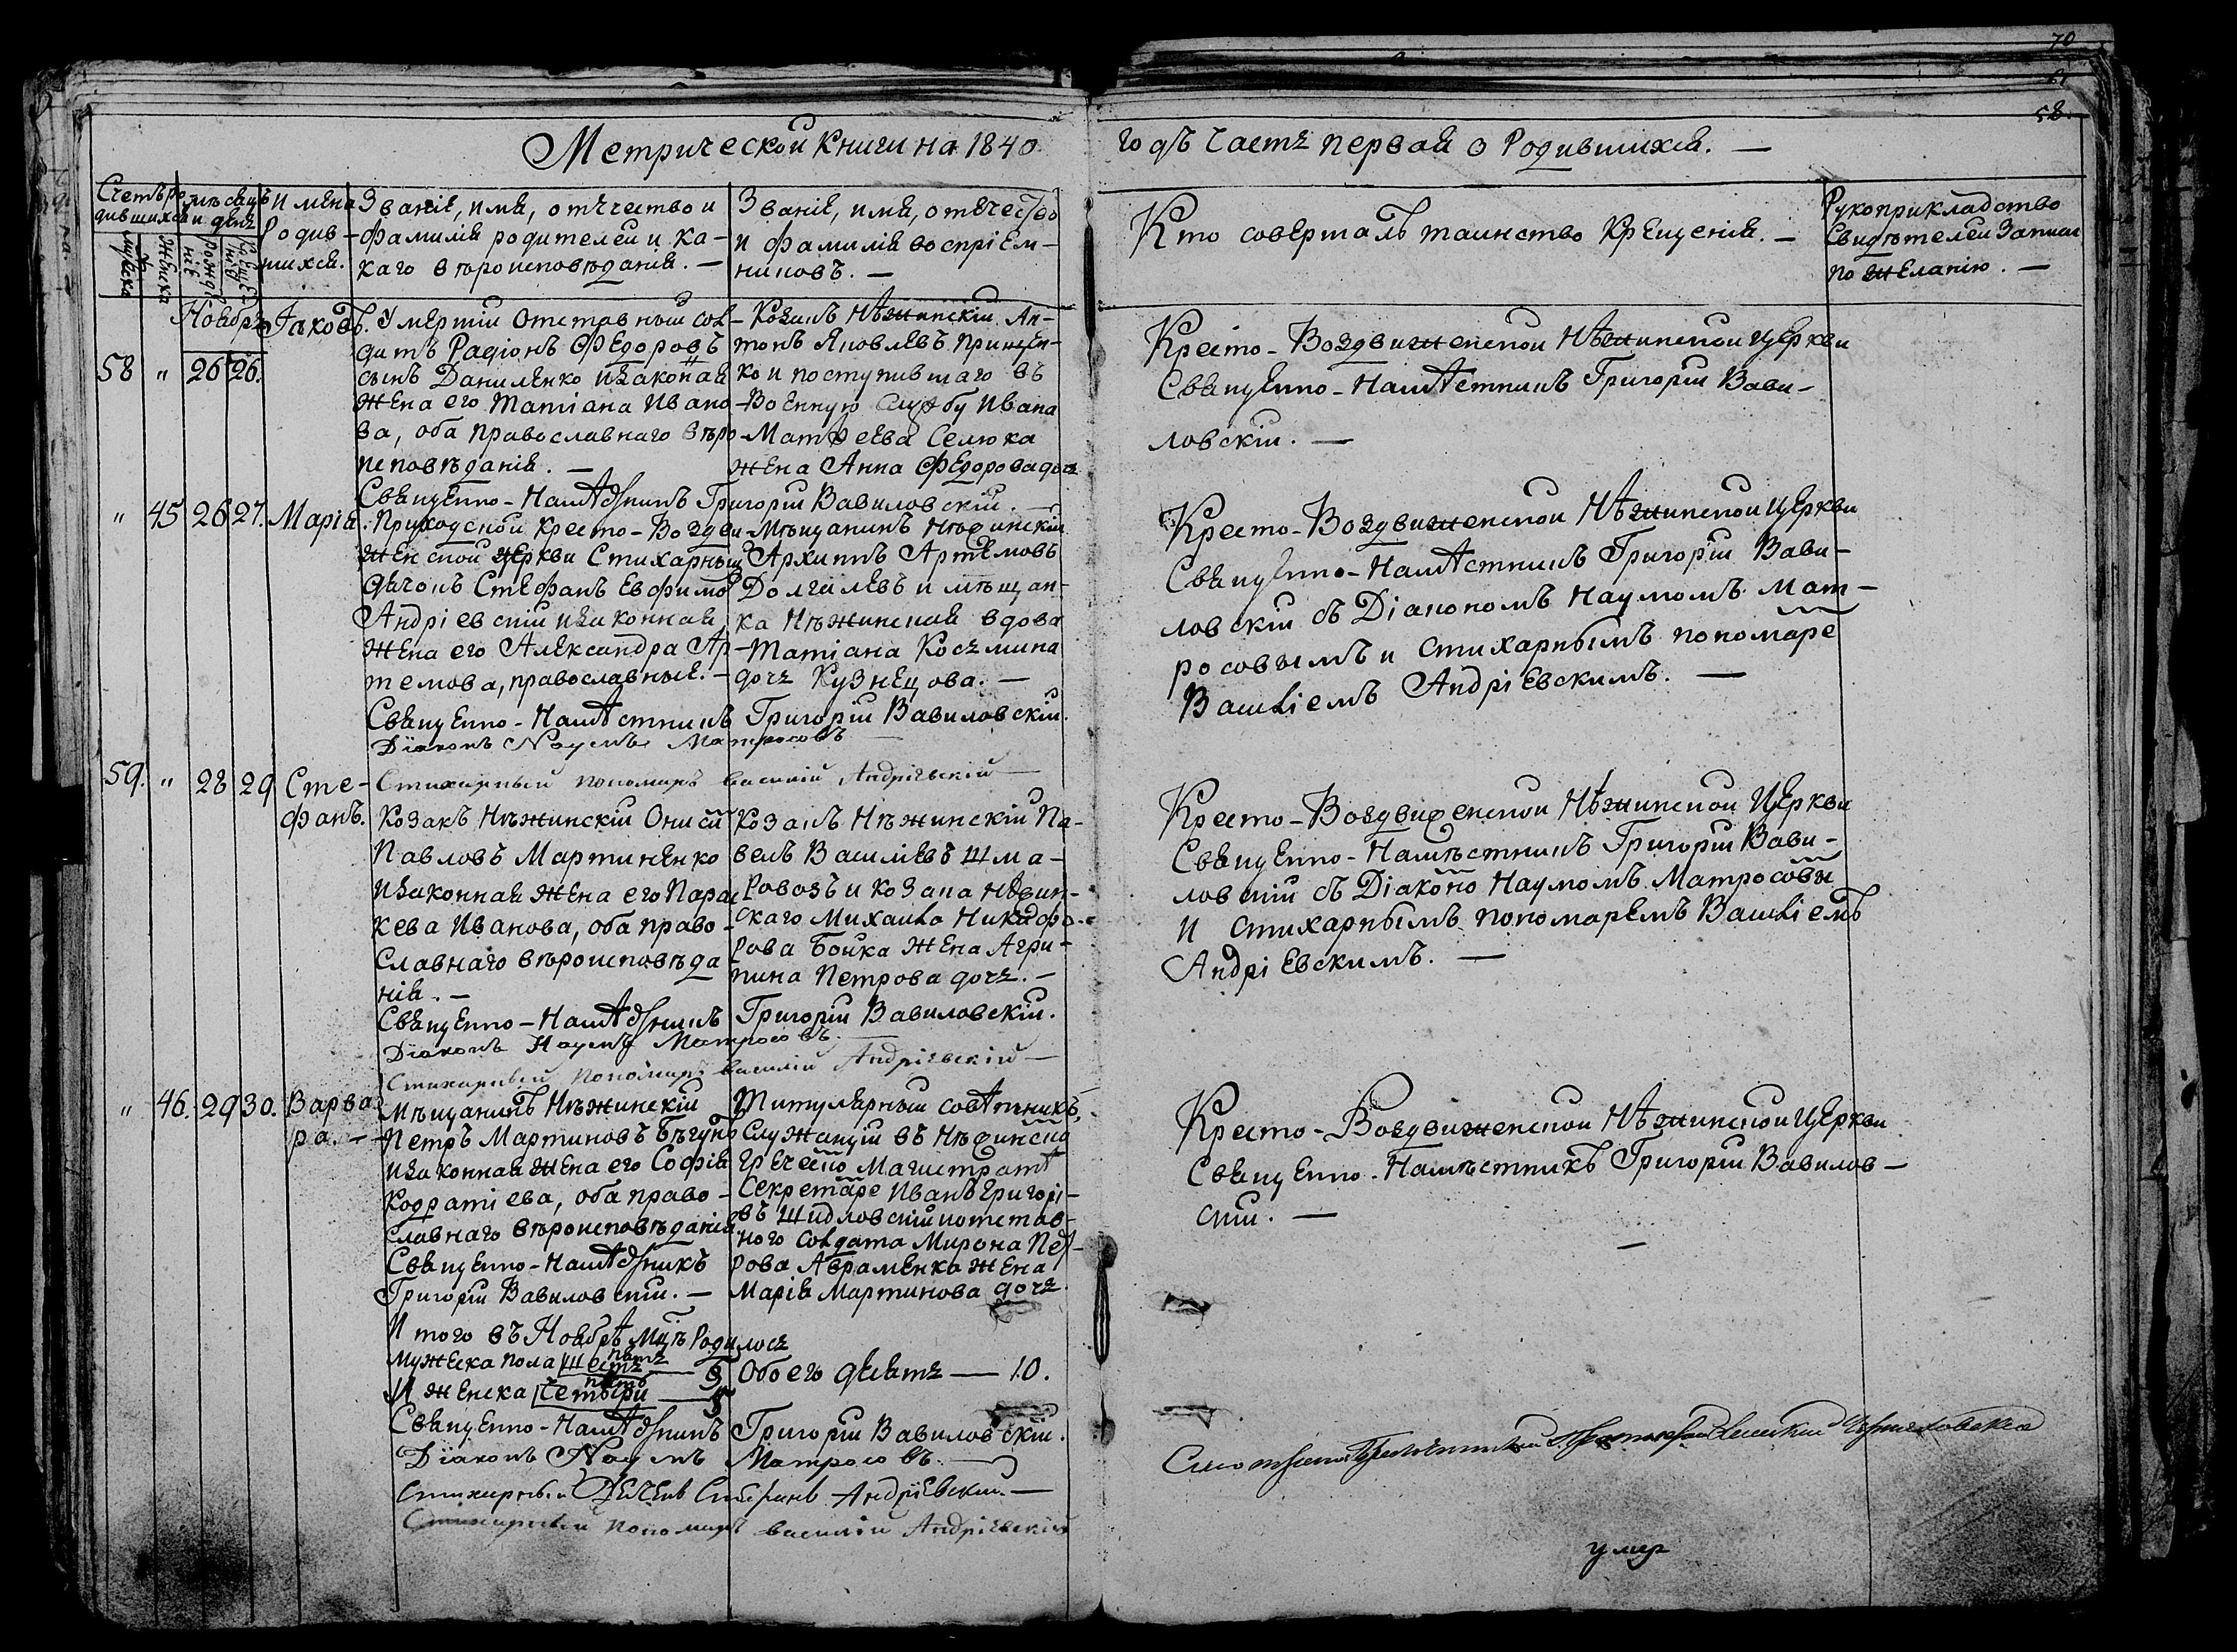 70
58.
Метрической книги на 1840
годъ часть первая о Родившихся. —
Счетъ ро-
дившихся
мужеска
женска
мѣсяцъ
и день
Рожде-
нія
Креще-
нія
Имена
Родив-
шихся.
Званіе, имя, отчество и
фамилія родителей и ка-
каго вѣроисповѣданія. —
Званіе, имя, отечество
и фамилія воспріем-
никовъ. —
Кто совершалъ таинство крещенія. —
Рукоприкладство
Свидѣтелей записи
по желанію. —
Ноабрь
58 " 26 26.
Іаковъ.
Умершій Отставный сол-
датъ Радіонъ Федоровъ
сынъ Даниленко и законая
жена его Татіана Ивано-
ва, оба православнаго вѣро-
исповѣданія. —
Козакъ Нѣжинскій Ан-
тонъ Яковлевъ Прищеп-
ко и поступившаго въ
Военную службу Ивана
Матѳеева Селюка
жена Анна Федорова дочь
Священно-Намѣстникъ Григорій Вавиловскій. —
Кресто-Воздвиженской Нѣжинской Церкви
Священно-Намѣстникъ Григорій Вави-
ловскій. —
" 45 26 27. Марія.
Приходской Кресто-Воздви-
женской церкви Стихарный
дячокъ Стефанъ Евфимов
Андріевскій и законная
жена его Александра Ар-
темова, православные. —
Мѣщанинъ Нѣжинскій
Архиппъ Артемовъ
Долгилевъ и мѣщан-
ка Нѣжинская вдова
Татіана Косьмина
дочь Кузнецова. —
Священно-Намѣстникъ Григорій Вавиловскій.
Діаконъ Наумъ Матросовъ —
Стихарный пономарь василій Андріевскій —
Кресто-Воздвиженской Нѣжинской Церкви
Священно-Намѣстникъ Григорій Вави-
ловскій съ Діакономъ Наумомъ Мат-
росовымъ и Стихарнымъ пономаре
Василіемъ Андріевскимъ. —
59. " 28 29 Сте-
фанъ.
Козакъ Нѣжинскій Онисій
Павловъ Мартиненко
и законная жена его Парас
кева Иванова, оба право-
славнаго вѣроисповѣда
нія. —
Козакъ Нѣжинскій Па-
велъ Василіевъ Шма-
ровозъ и козака Нѣжин-
скаго Михаила Никифо-
рова Бойка жена Агри-
пина Петрова дочь. —
Священно-Намѣстникъ Григорій Вавиловскій.
Діаконъ Наумъ Матросовъ. —
Стихарный пономарь василій Андріевскій —
Кресто-Воздвиженской Нѣжинской Церкви
Священно-Намѣстникъ Григорій Вави-
ловскій съ Діаконо Наумомъ Матросовы
и стихарнымъ пономаремъ Василіемъ
Андріевскимъ. —
" 46. 29 30. Варва
ра. —
Мѣщанинъ Нѣжинскій
Петръ Мартиновъ Бѣгун
и законная жена его Софія
Кодратіева, оба право-
славнаго вѣроисповѣданія
Священно-Намѣстникъ
Григорій Вавиловскій. —
Титулярный совѣтникъ,
Служащій въ Нѣжинско
Греческо Магистратѣ
Секретаре Иванъ Григорі-
въ Шидловскій и отстав-
ного солдата Мирона Пет-
рова Авраменка жена
Марія Мартинова дочь.
Кресто-Воздвиженской Нѣжинской Церкви
Священно-Намѣстникъ Григорій Вавилов-
скій. —
Итого въ Ноабрѣ мцѣ Родилось
Мужеска пола шесть пять — 5
И женска четыри пять — 5
Обоего десять — 10.
Священно-Намѣстникъ Григорій Вавиловскій.
Діаконъ Наумъ Матросовъ. —
Стихарный Дячекъ Стефанъ Андріевскій. —
Стихарный пономарь василій Андріевскій
умер